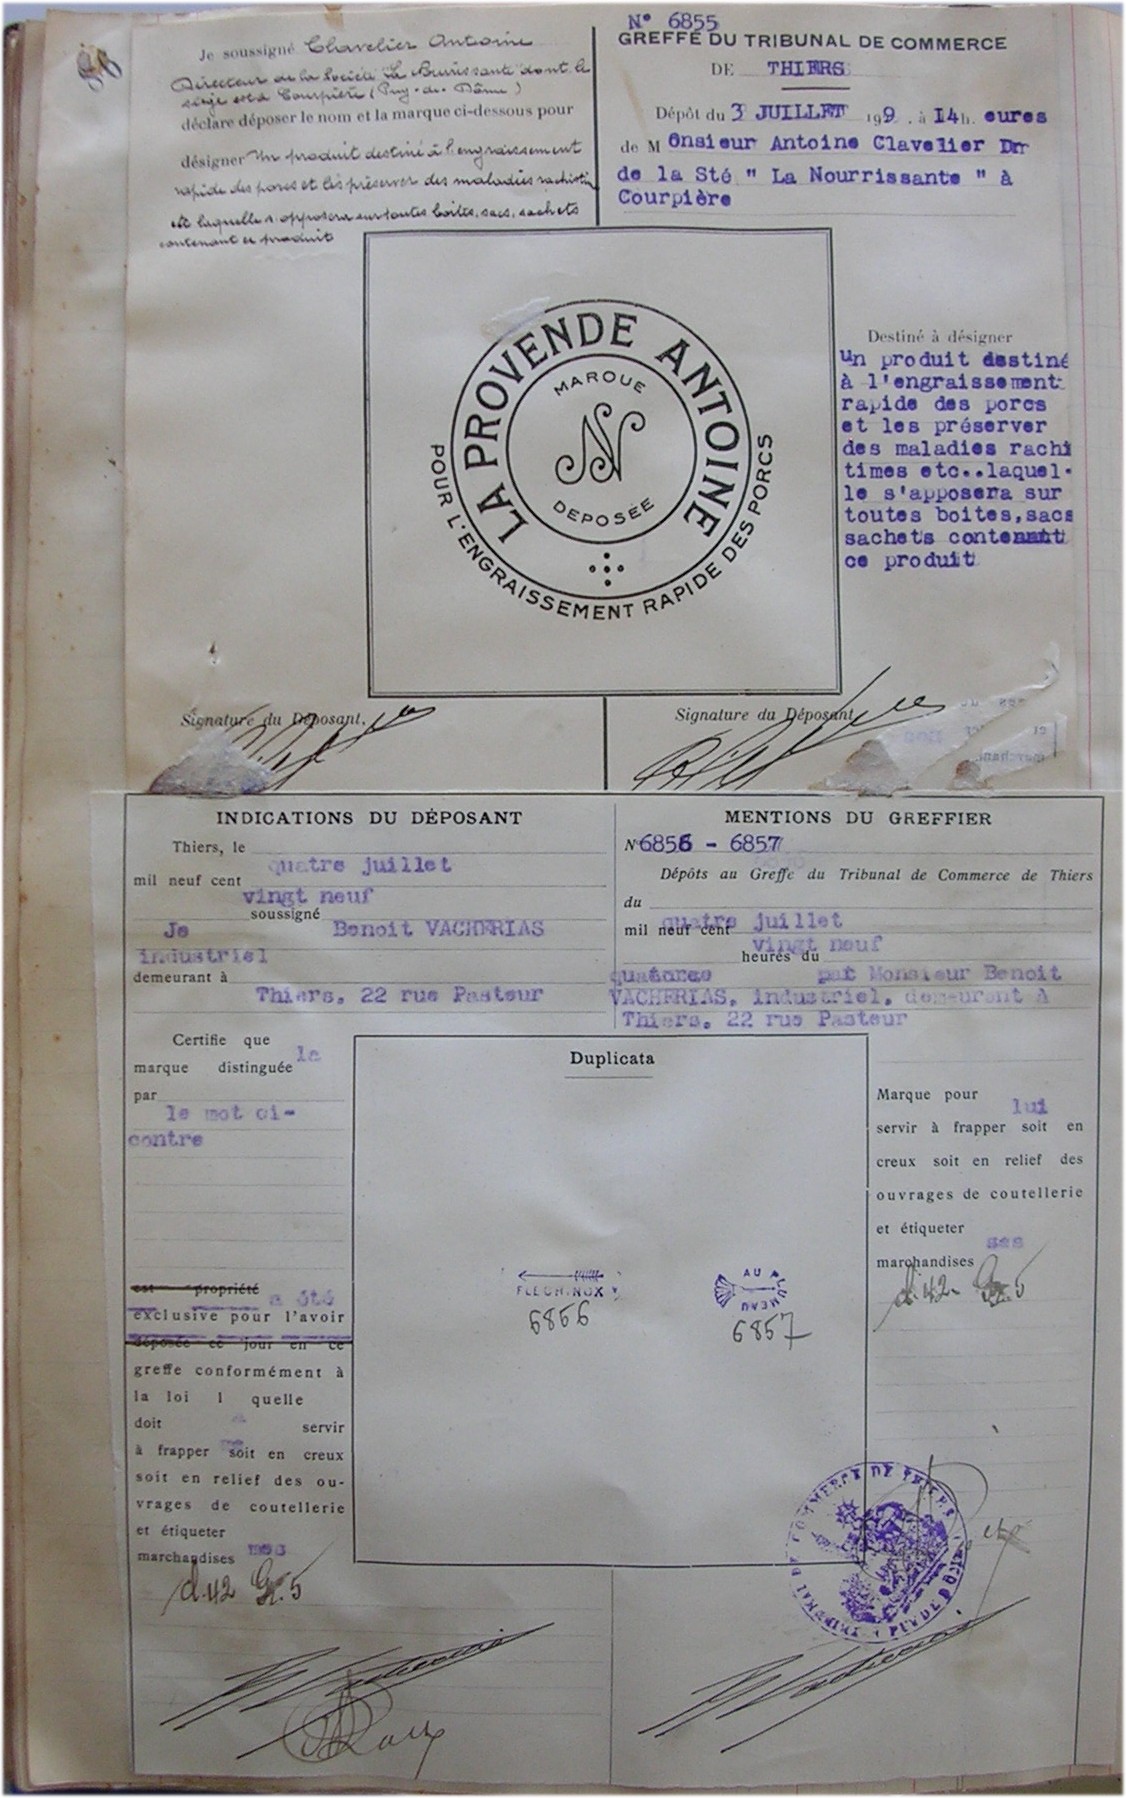 Je soussigné Chavelier Antoine
Directeur de la Société "La Nourrissante" dont le
siège est à Courpière (Puy-de-Dôme)
déclare déposer le nom et la marque ci-dessous pour
désigner Un produit destiné à l'engraissement
rapide des porcs et les préserver des maladies rachitim
etc laquelle s'apposera sur toutes boites, sacs, sachets
contenant ce produit
N° 6855
GREFFE DU TRIBUNAL DE COMMERCE
DE THIERS
Dépôt du 3 JUILLET 19 9. à 14 h. eures
de M Onsieur Antoine Clavelier Dr
de la Sté " La Nourrissante " à
Courpière
LA PROVENDE ANTOINE
MARQUE
DÉPOSÉE
POUR L'ENGRAISSEMENT RAPIDE DES PORCS
Destiné à désigner
un produit destiné
à l'engraissement
rapide des porcs
et les préserver
des maladies rachi
times etc..laquel-
le s'apposera sur
toutes boites,sacs
sachets contenant
ce produit
Signature du Déposant,
Signature du Déposant,
INDICATIONS DU DÉPOSANT
Thiers, le
quatre juillet
mil neuf cent
vingt neuf
soussigné
Je Benoit VACHERIAS
industriel
demeurant à
Thiers, 22 rue Pasteur
MENTIONS DU GREFFIER
N° 6856 - 6857
Dépôts au Greffe du Tribunal de Commerce de Thiers
du
quatre juillet
mil neuf cent
vingt neuf
heures du
quatorze par Monsieur Benoit
VACHERIAS, industriel, demeurant à
Thiers, 22 rue Pasteur
Certifie que
la
marque distinguée
par
le mot ci-
contre
est propriété
a été
exclusive pour l'avoir
déposée ce jour en ce
greffe conformément à
la loi l quelle
doit servir
à frapper soit en creux
soit en relief des ou-
vrages de coutellerie
et étiqueter
marchandises mes
d. 42 Gr. 5
Duplicata
FLECHINOX
6856
AU PLUMEAU
6857
Marque pour
lui
servir à frapper soit en
creux soit en relief des
ouvrages de coutellerie
et étiqueter
ses
marchandises
d. 42 Gr. 5
TRIBUNAL DE COMMERCE DE THIERS
PUY DE DOME